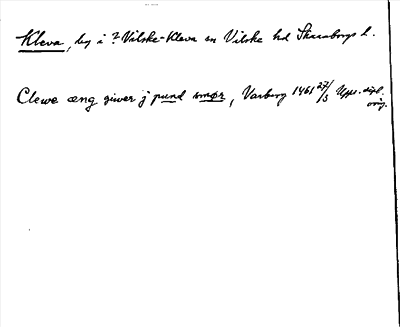 Kleva, by i ? Vilske-Kleva sn Vilske hd Skaraborgs l.
Clewe æng giwer j pund smør, Varberg 1461 27/3 Upps. dipl. orig.